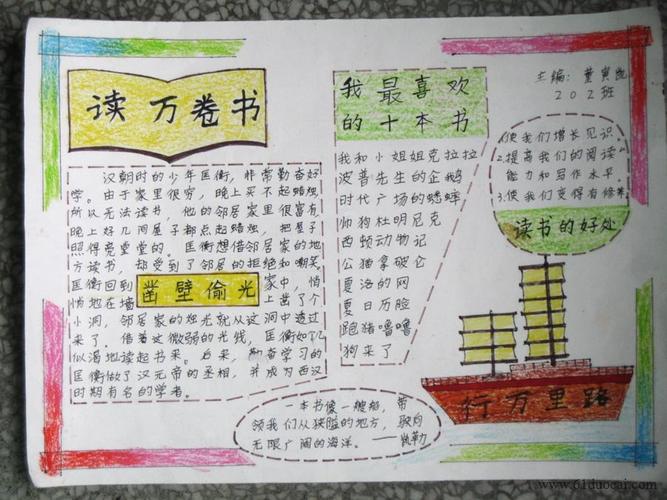 读万卷书
汉朝时的少年匡衡,非常勤奋好
学。由于家里很穷,晚上买不起蜡烛
所以无法读书,他的邻居家里很富有
晚上好几间屋子都点起蜡烛,把屋子
照得亮堂堂的。匡衡想借邻居家的地
方读书,却受到了邻居的拒绝和嘲笑。
匡衡回到家中,悄
悄地在墙上凿了个
凿壁偷光
小洞,邻居家的烛光就从这洞中透过
来了。借着这微弱的光线,匡衡如饥
似渴地读起书来。后来,勤奋学习的
匡衡做了汉元帝的丞相,并成为西汉
时期有名的学者。
我最喜欢
的十本书
我和小姐姐克拉拉
波普先生的企鹅
时代广场的蟋蟀
帅狗杜明尼克
西顿动物记
公猫拿破仑
夏洛的网
夏日历险
跑猪噜噜
狗来了
主编:黄寅
202班
1.使我们增长见识。
2.提高我们的阅读
能力和写作水平。
3.使我们变得有修养
读书的好处
行万里路
一本书像一艘船,带
领我们从狭隘的地方,驶向
无限广阔的海洋。——凯勒
www.61duocai.com